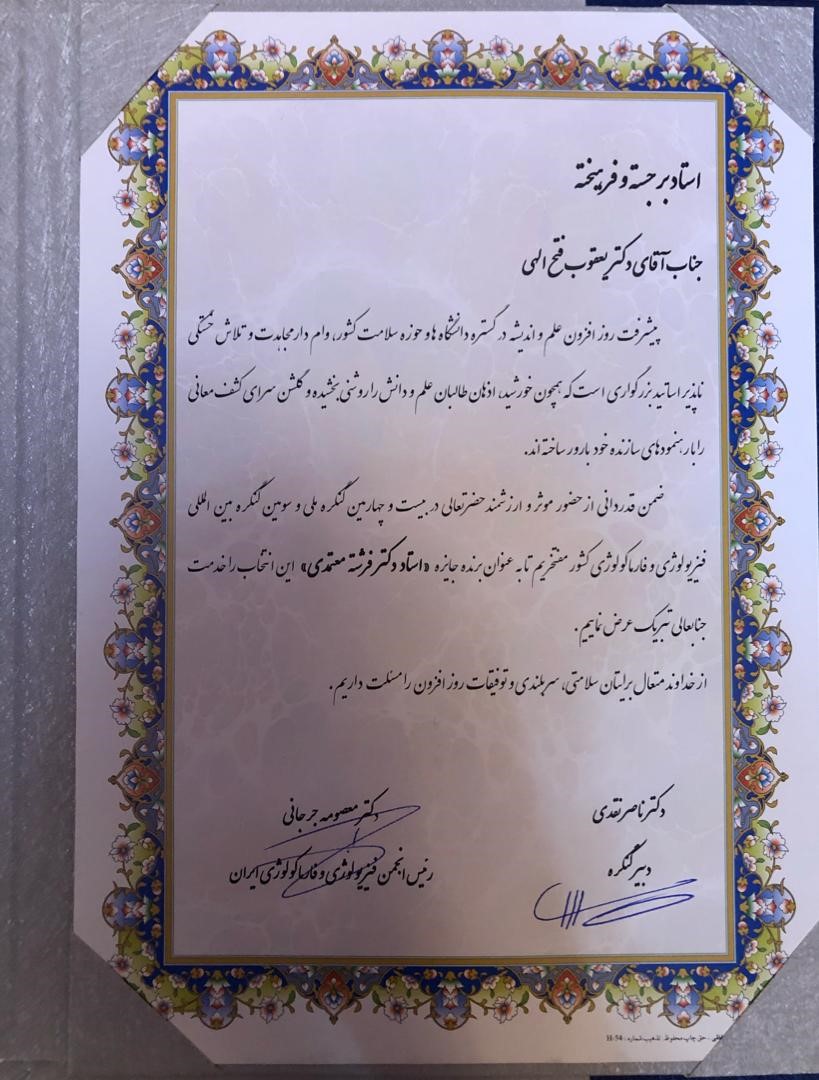 استاد برجسته و فرهیخته
جناب آقای دکتر یعقوب فتح الهی
پیشرفت روز افزون علم و اندیشه در گستره دانشگاه ها و حوزه سلامت کشور، وام دار مجاهدت و تلاش خستگی
ناپذیر اساتید بزرگواری است که همچون خورشید، اذهان طالبان علم و دانش را روشنی بخشیده و گلشن سرای کشف معانی
را با رهنمودهای سازنده خود بارور ساخته اند.
ضمن قدردانی از حضور موثر و ارزشمند حضرتعالی در بیست و چهارمین کنگره ملی و سومین کنگره بین المللی
فیزیولوژی و فارماکولوژی کشور مفتخریم تا به عنوان برنده جایزه «استاد دکتر فرشته معتمدی» این انتخاب را خدمت
جنابعالی تبریک عرض نماییم.
از خداوند متعال برایتان سلامتی، سربلندی و توفیقات روز افزون را مسئلت داریم.
دکتر ناصر نقدی
دبیر کنگره
دکتر معصومه جرجانی
رئیس انجمن فیزیولوژی و فارماکولوژی ایران
حق چاپ محفوظ. تذهیب شماره: H-54